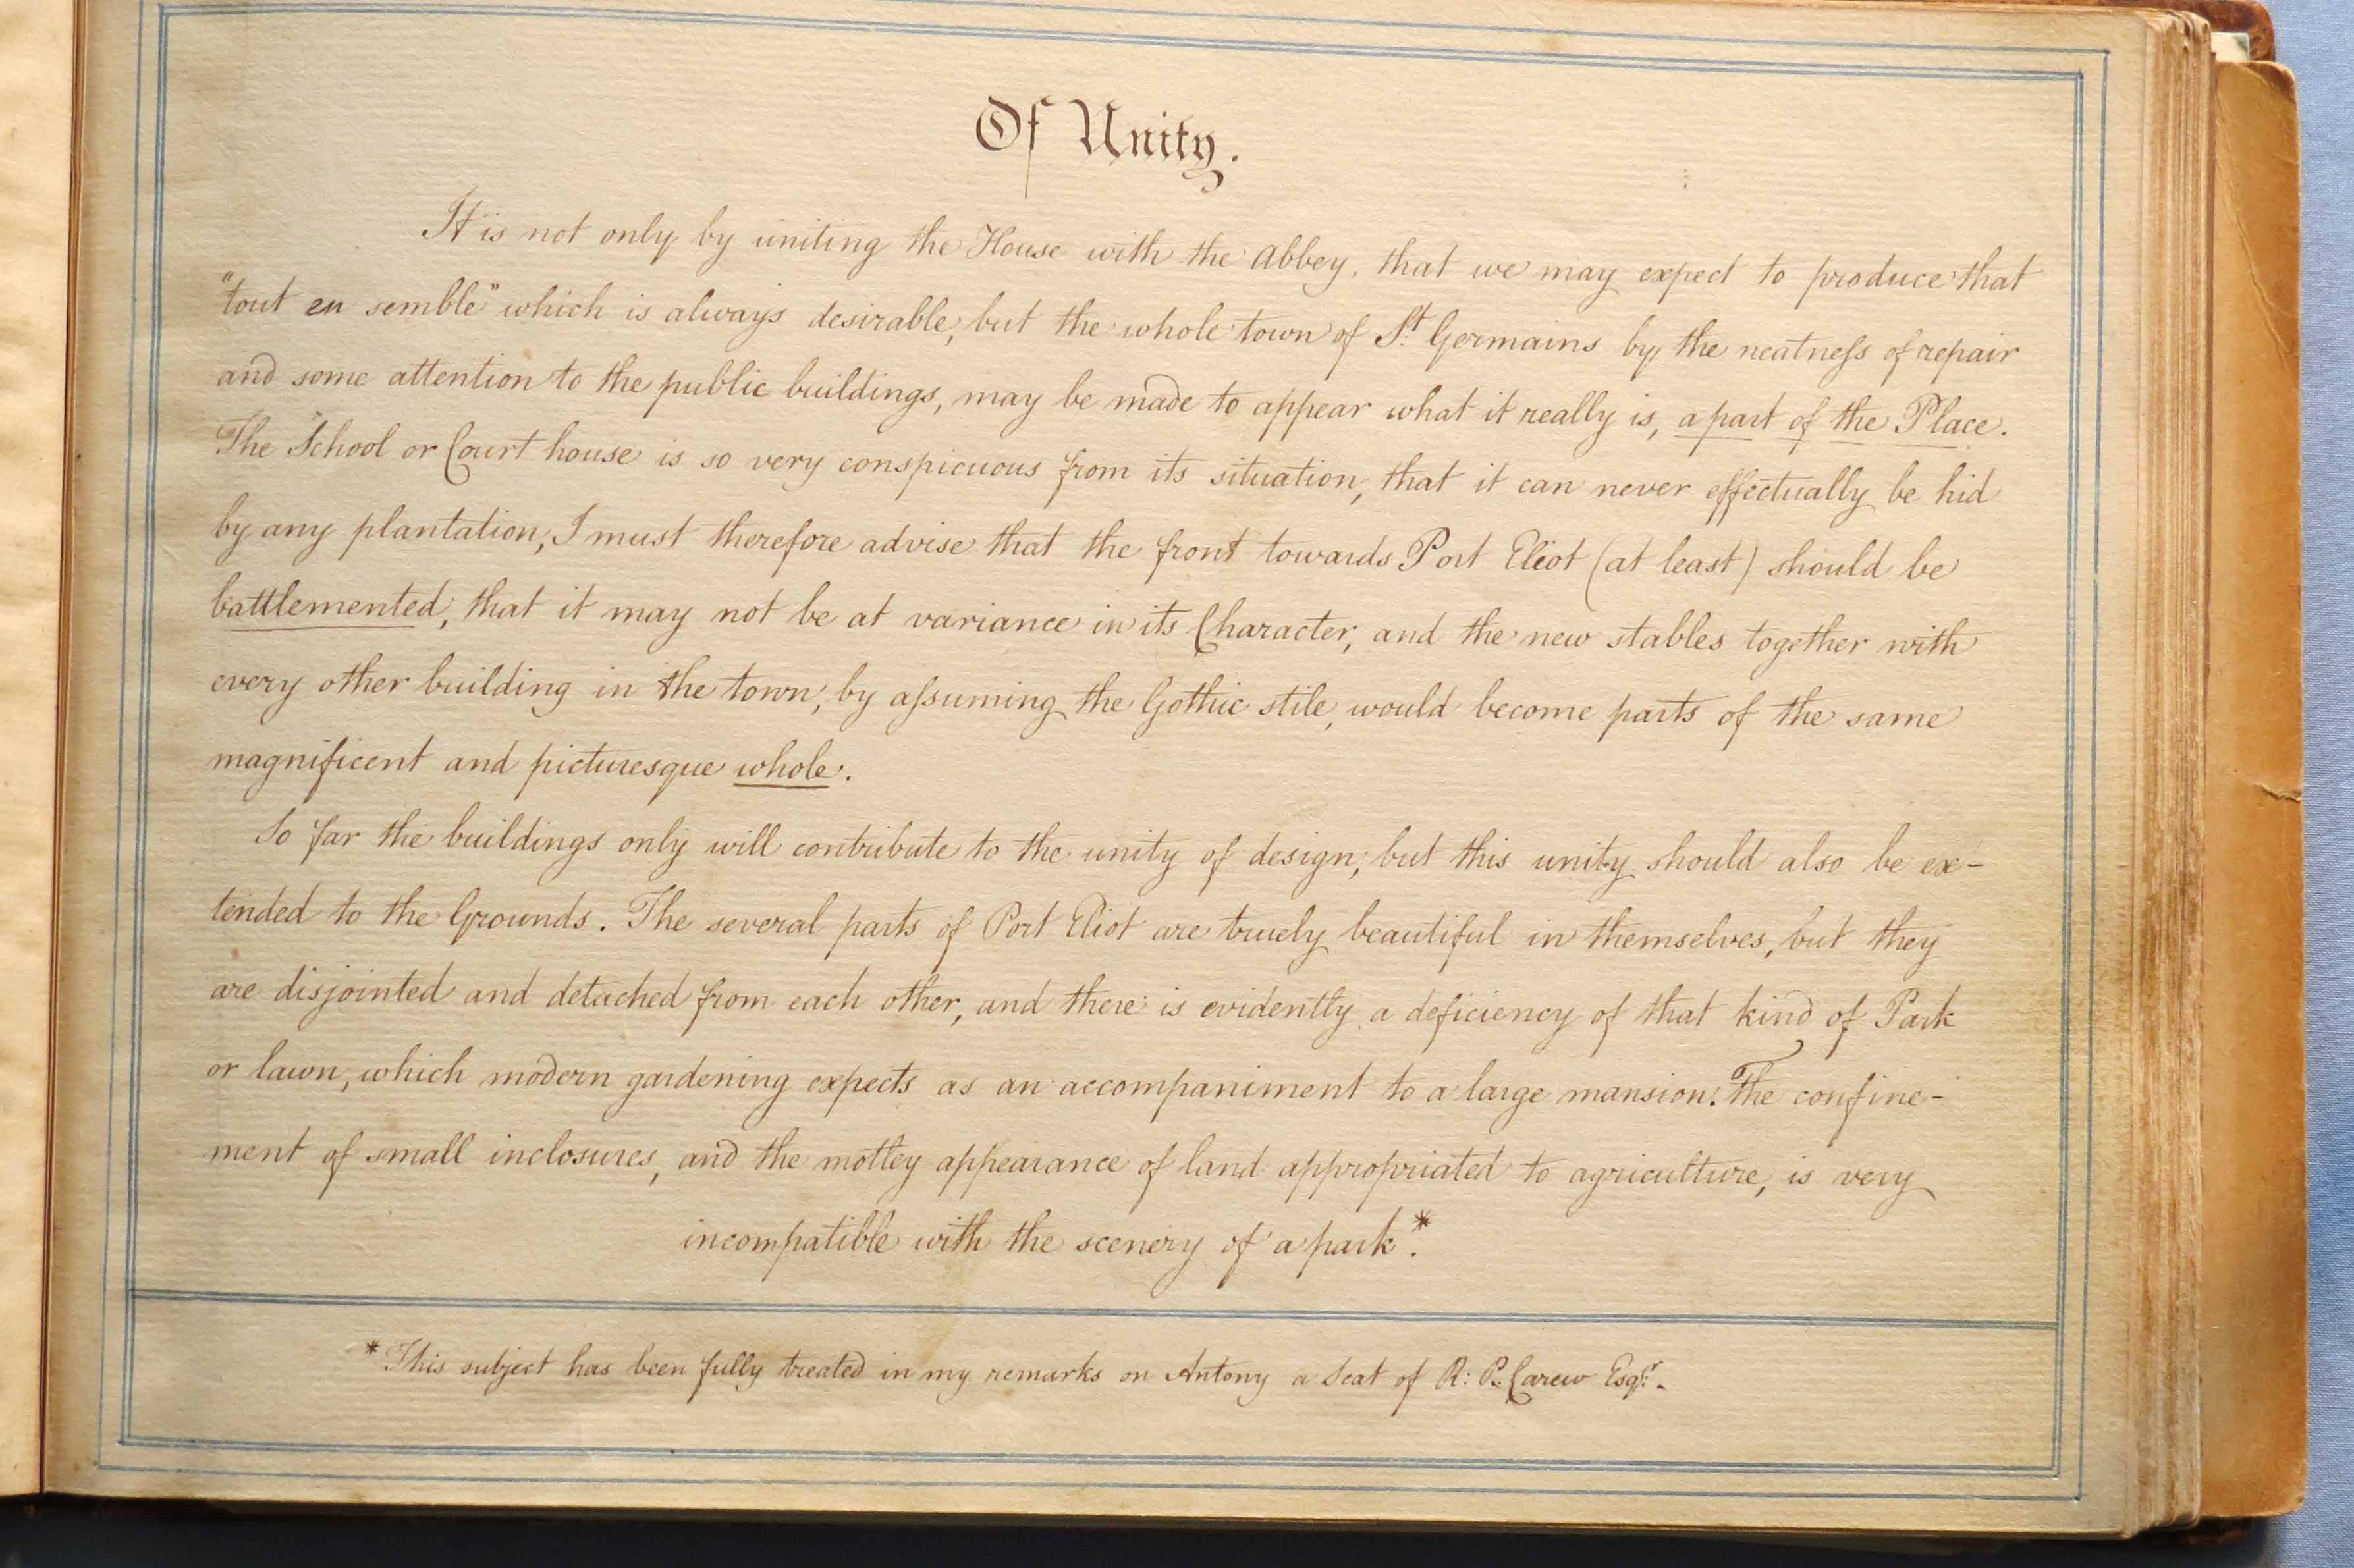 Of Unity.
It is not only by uniting the House with the Abbey, that we may expect to produce that
"tout en semble" which is always desirable, but the whole town of St. Germains by, the neatneſs of repair
and some attention to the public buildings, may be made to appear what it really is, a part of the Place.
The School or Court house is so very conspicuous from its situation, that it can never effectually be hid
by any plantation, I must therefore advise that the front towards Port Eliot (at least) should be
battlemented, that it may not be at variance in its Character, and the new stables together with
every other building in the town, by aſsuming the Gothic stile, would become parts of the same
magnificent and picturesque whole.
So far the buildings only will contribute to the unity of design; but this unity should also be ex-
tended to the Grounds. The several parts of Port Eliot are truely beautiful in themselves, but they
are disjointed and detached from each other, and there is evidently a deficiency of that kind of Park
or lawn, which modern gardening expects as an accompaniment to a large mansion. The confine-
ment of small inclosures, and the motley appearance of land appropriated to agriculture, is very
incompatible with the scenery of a park*.
* This subject has been fully treated in my remarks on Antony a Seat of R: P. Carew Esqr.